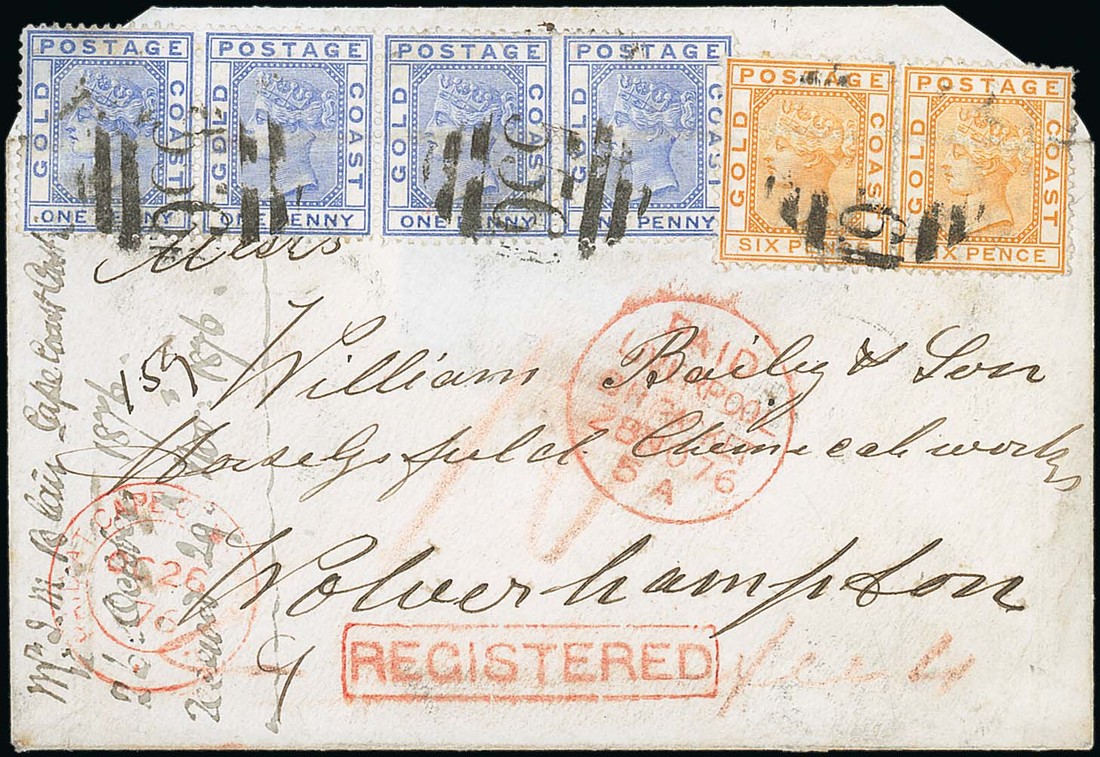 POSTAGE GOLD COAST ONE PENNY
POSTAGE GOLD COAST ONE PENNY
POSTAGE GOLD COAST ONE PENNY
POSTAGE GOLD COAST ONE PENNY
POSTAGE GOLD COAST SIX PENCE
POSTAGE GOLD COAST SIX PENCE
Messrs
159 William Bailey & Son
Horselysfield Chemical works
Wolverhampton
PAID
LIVERPOOL
28
76
5 A
REGISTERED
PAID AT CAPE
26
76
Cape Coast Castle
1876
1876